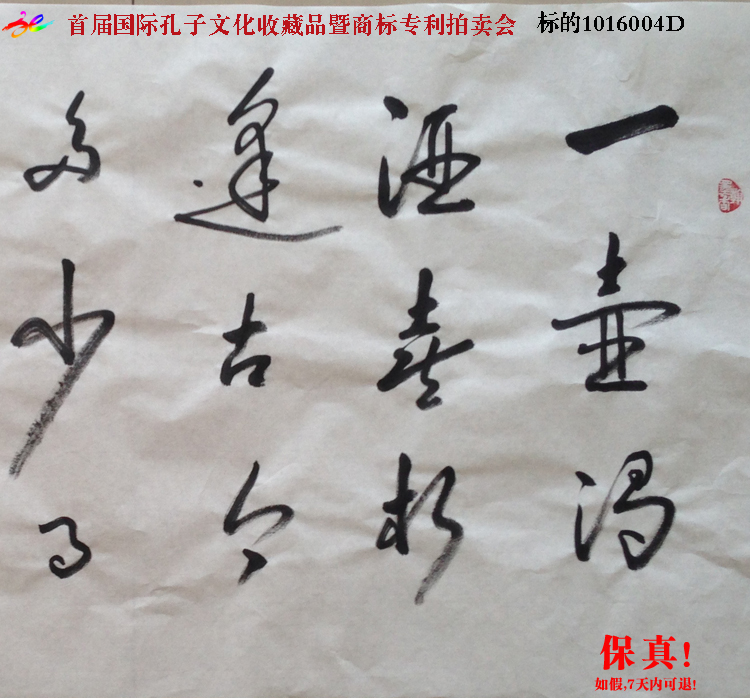 首届国际孔子文化收藏品暨商标专利拍卖会 标的1016004D
一壶濁
酒喜相
逢古今
多少事
保真!
如假,7天内可退!